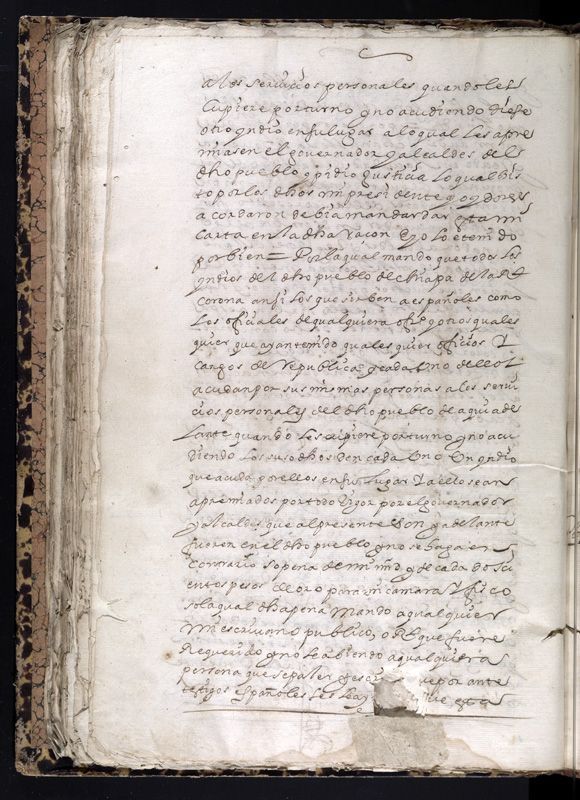 a los serviçios personales quando les
cupiere por turno y no acudiendo diese
otro yndio en su lugar a lo qual les apre
miasen el governador y alcaldes del
dho pueblo y pidio justicia lo qual bis
to por los dhos mi presidente y oydores
acordaron debia mandar dar esta mi
carta en la dha raçon E yo lo e tenido
por bien = Por la qual mando que todos los
yndios del dho pueblo de chiapa de la Rl
corona ansi los que sirben a españoles como
los ofiçiales de qualquiera ofiçio y otros quales
quier que ayan tenido quales quier ofiçios
cargos de Republica y cada Uno dellos
acudan por sus mismas personas a los servi
çios personales del dho pueblo de aqui ade
lante quando les cupiere por turno y no acu
diendo los susodhos den cada Uno Un yndio
que acuda por ellos en su lugar a ello sean
apremiados por todo Rigor por el governador
y alcaldes que al presente son y adelante
fueren en el dho pueblo y no se haga en
contrario so pena de mi md y de cada dosçi
entos pesos de oro para mi camara fisco
so la qual dha pena mando a qualquier
mi escrivano publico, o Rl que fuere
Requerido y no lo abiendo a qualquiera
persona que sepa leer escri ve por ante
testigos españoles les